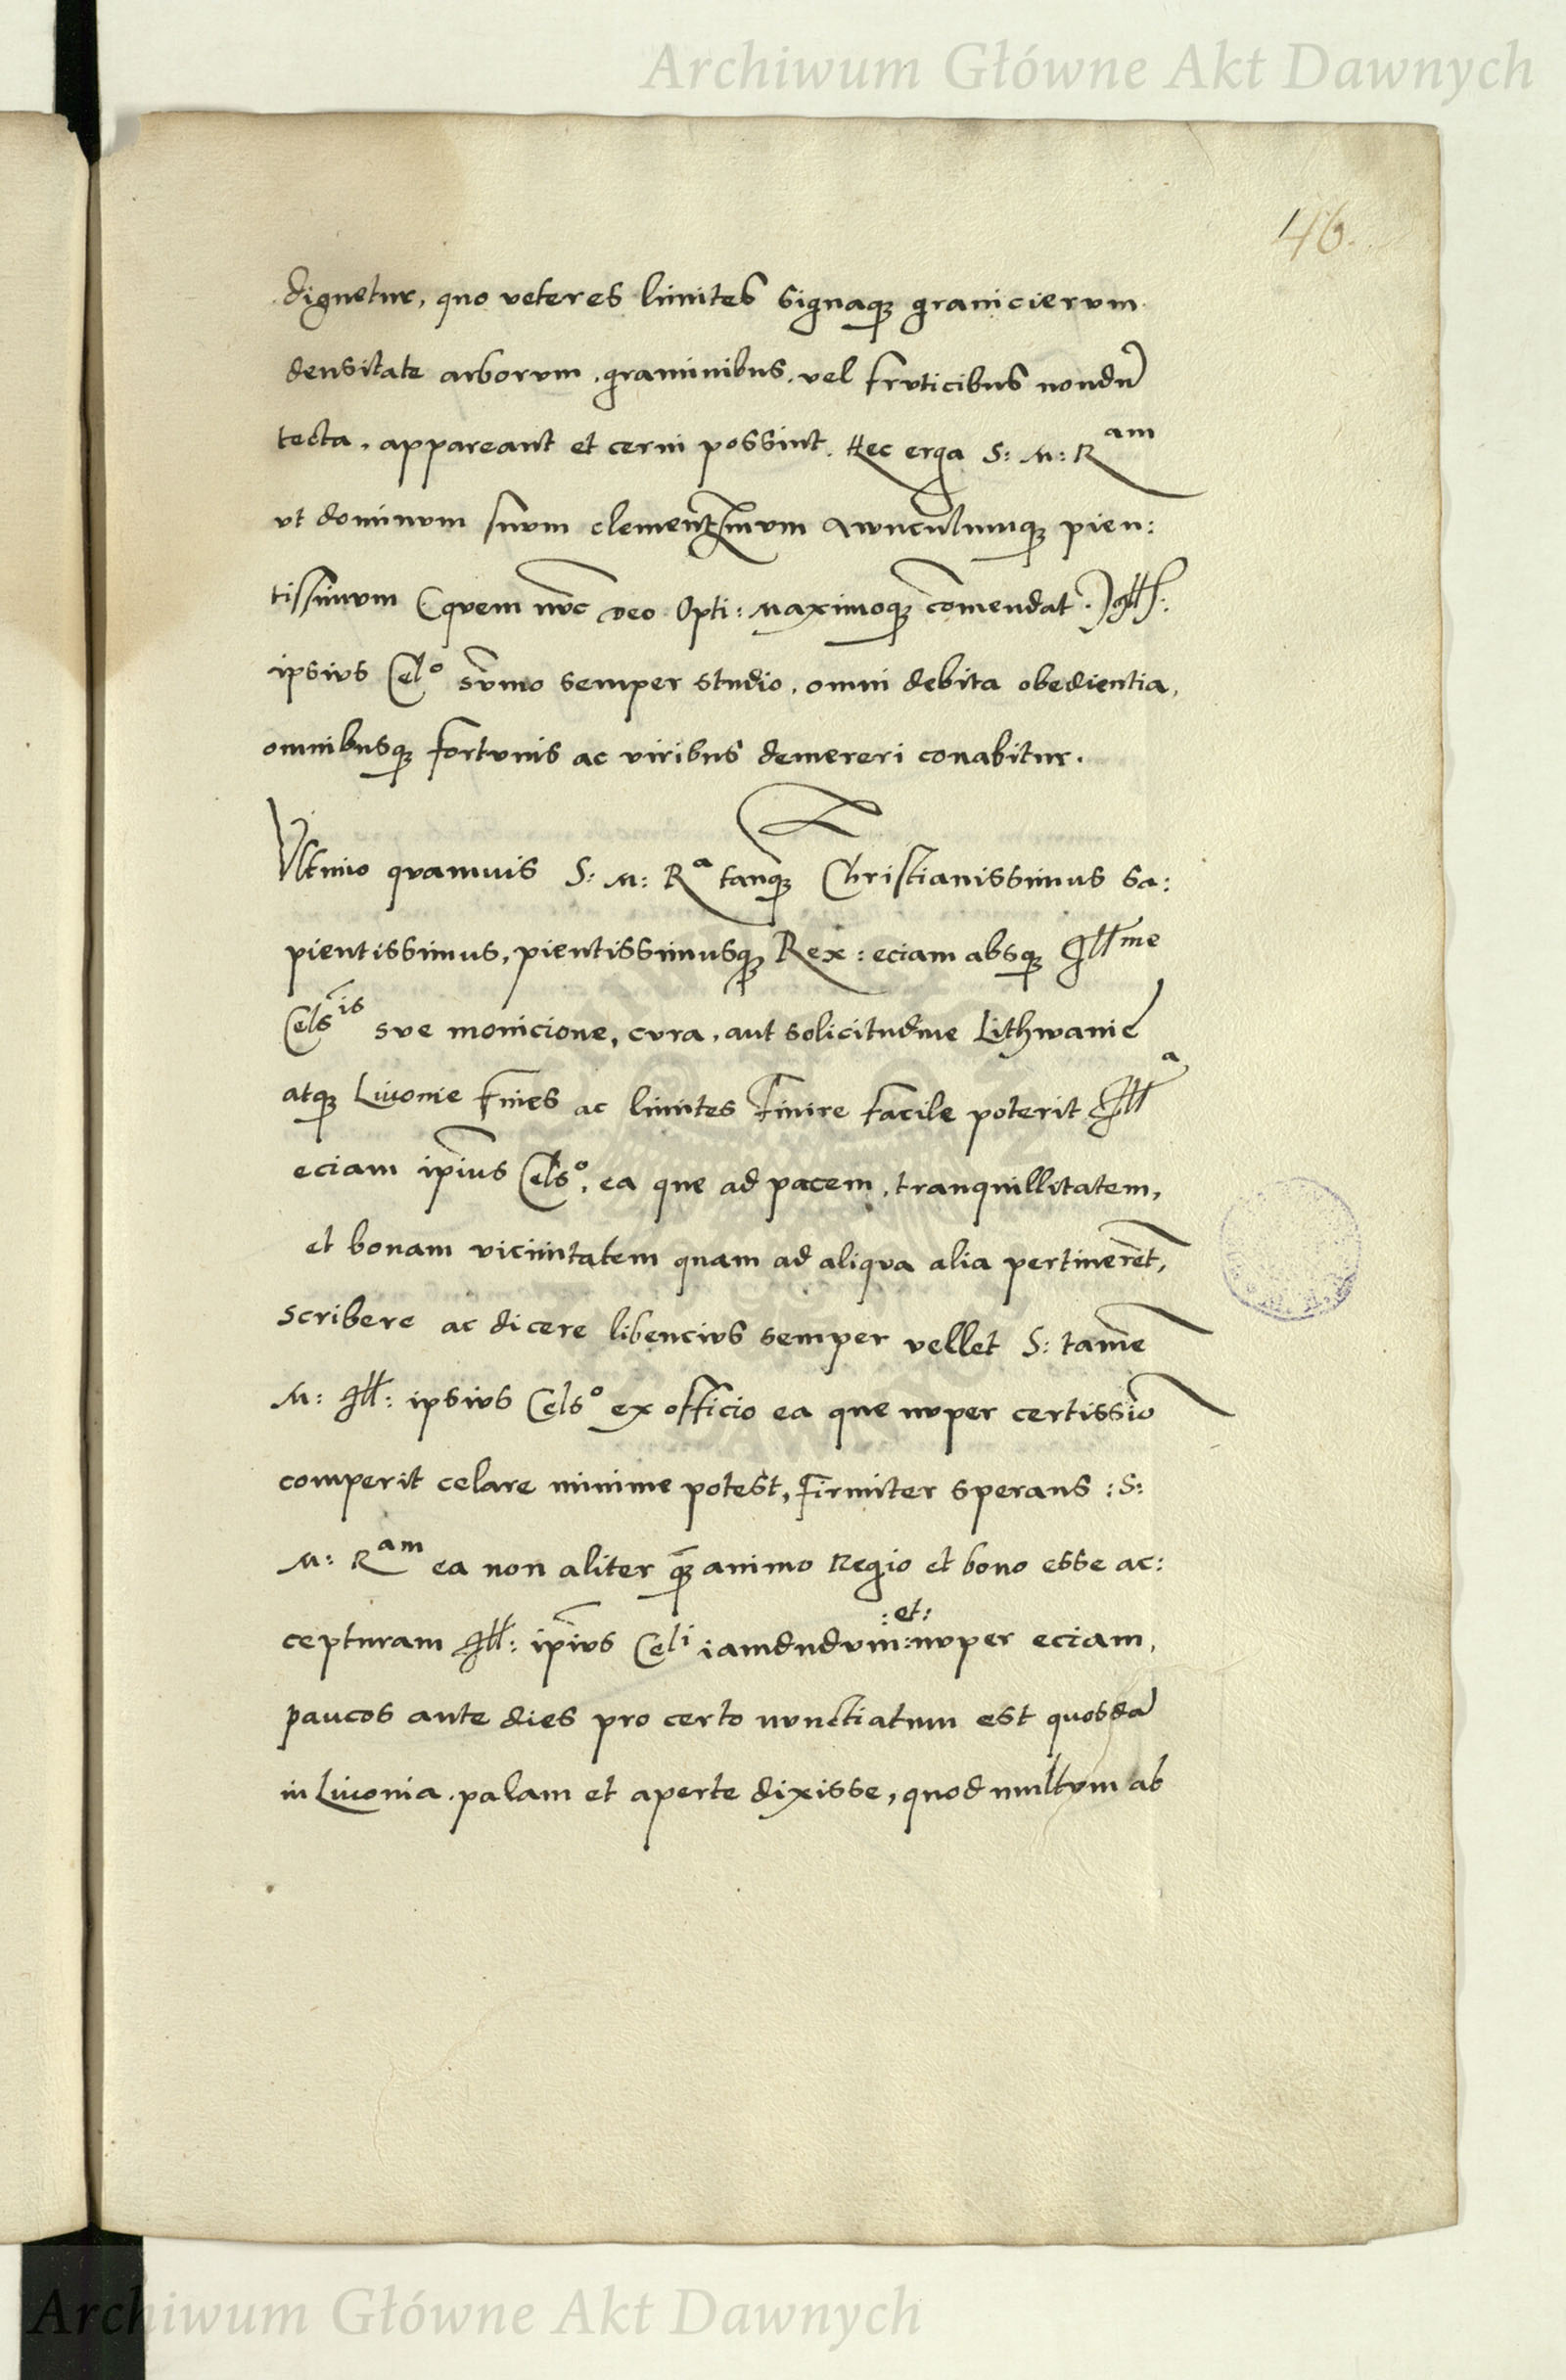 Archiwum Główne Akt Dawnych
46.
dignetur, quo veteres limites signaq(ue) granicierum
densitate arborum, graminibus, vel fruticibus nondū
tecta, appareant et cerni possint. Hec erga S: M: R am
ut dominum suum clementissimum Awunculumq(ue) pien:
tissimum (quem nūc Deo Opti: Maximoq(ue) com̄endat.) Ill:
ipsius Cel o sum̄o semper studio, omni debita obedientia,
omnibusq(ue) fortunis ac viribus demereri conabitur.
Ultimo quamuis S: M: R a tanq(uam) Christianissimus sa:
pientissimus, pientissimusq(ue) Rex: eciam absq(ue) Ill me
Cels is sue monicione, cura, aut solicitudine Lithwanie
atq(ue) Livonie fines ac limites finire facile poterit Ill a
eciam ip̄ius Cels o, ea que ad pacem, tranquillitatem,
et bonam vicinitatem quam ad aliqua alia pertinerēt,
scribere ac dicere libencius semper vellet S: tamē
M: Ill: ipsius Cels o ex officio ea que nuper certissīo
comperit celare minime potest, firmiter sperans: S:
M: R am ea non aliter q(uam) animo Regio et bono esse ac:
cepturam Ill: ip̄ius Cel i iamdudum :et: nuper eciam,
paucos ante dies pro certo nunctiatum est quosdā
in Livonia palam et aperte dixisse, quod multum ab
Archiwum Główne Akt Dawnych